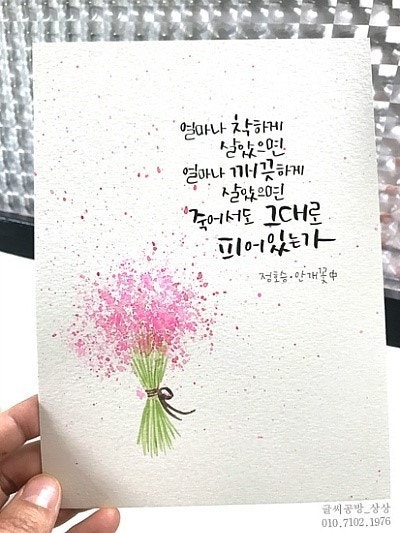 얼마나 착하게
살았으면
얼마나 깨끗하게
살았으면
죽어서도 그대로
피어있는가
정호승·안개꽃中
글씨공방_상상
010.7102.1976